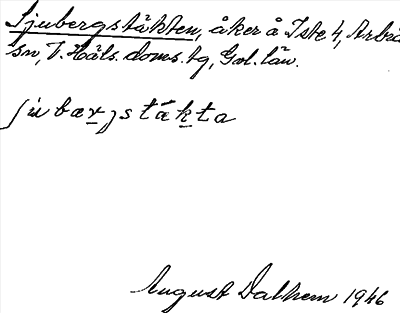 Ljubergstäkten, åker å Iste 4, Arbrå
sn, V. Häls. doms. tg, Gvl. län.
jubærjstäkta
August Dalhem 1946